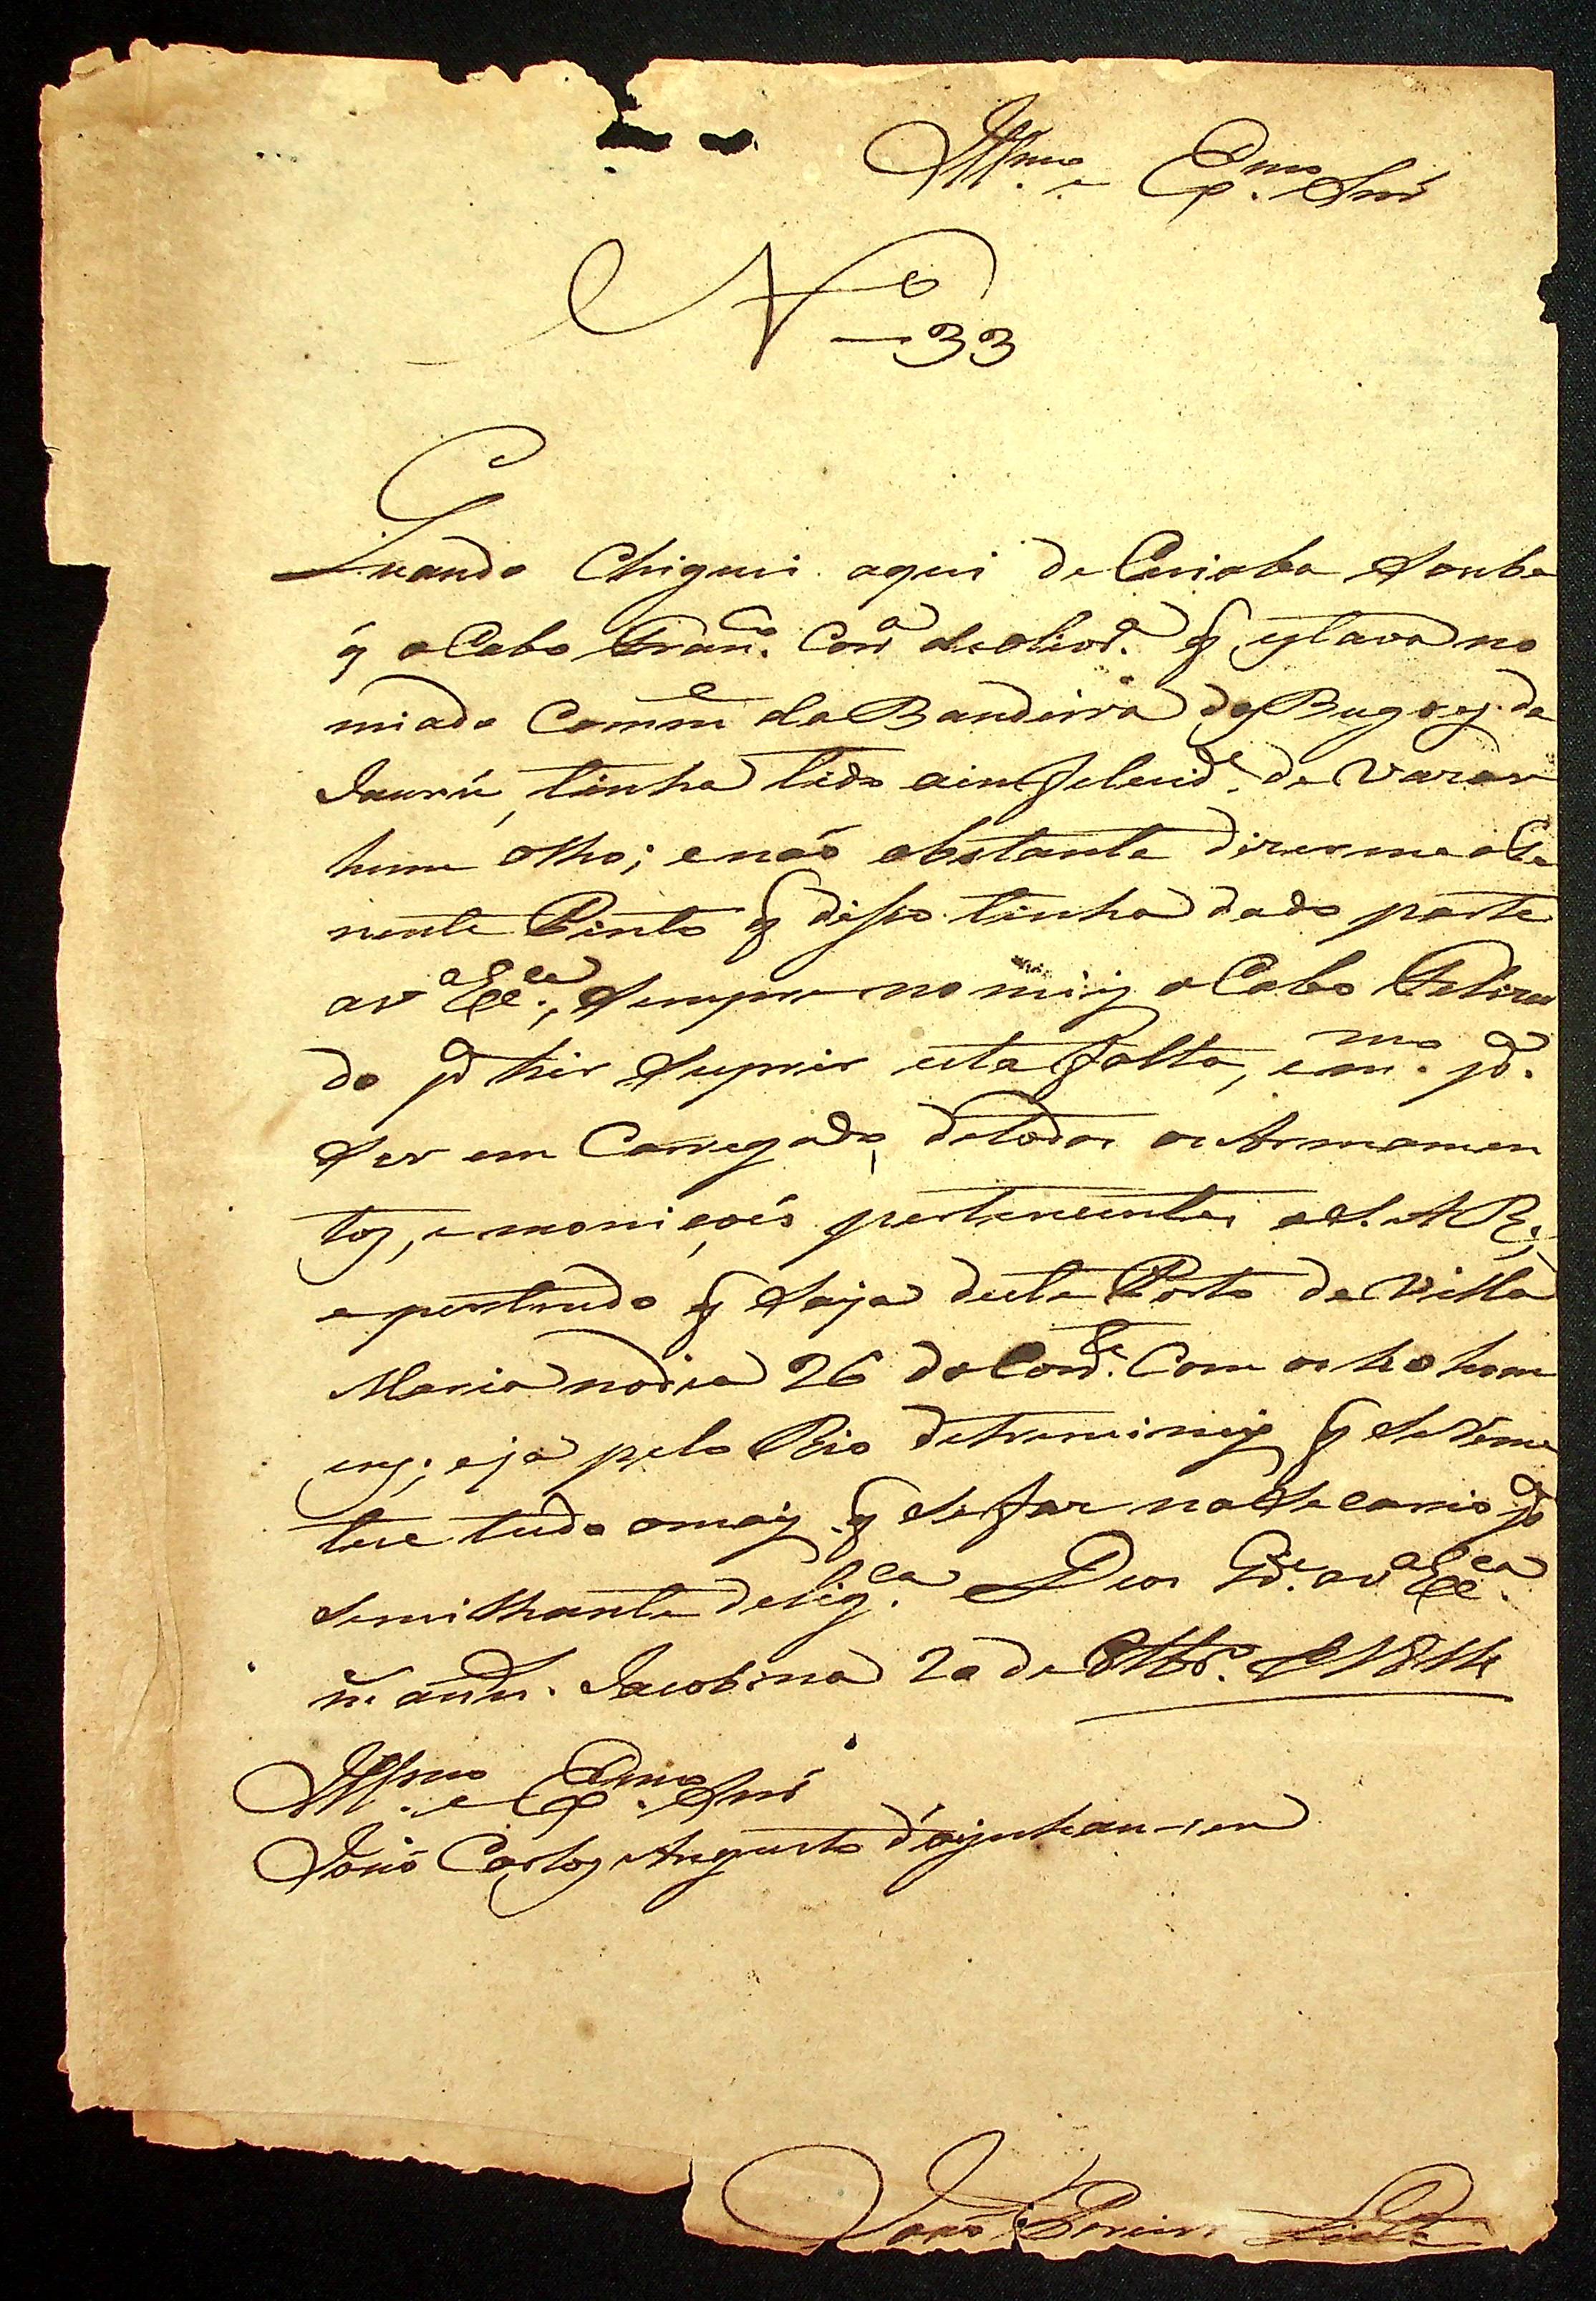 Illmo. e Exmo. Snr
No 33
Quando Chiguei aqui de Cuiaba Soube
q̃ o Cabo Franco. Corra. de olivra. q̃ estava no
miado Comme. da Bandeira dos Bugres da
Jaurú, tinha tido ainfelicide. de Varar
hum olho; enaõ obstante dizerme oTe
nente Pinto q̃ disso tinha dado parte
av Exa., Sempre nomiei o Cabo
do pa. hir Suprir esta falta, emmo. pa.
Ser em Carregado detodos os Armamen
tos, e moniçoẽs pertencentes aS. A R;
epertendo q̃ Saya deste Porto de Villa
Maria nodia 26 do Corre. Com os ho hom
ens; eja pelo Rio detreminei q̃ Se reme
tese tudo omais q̃ Sefaz naSecario pa
Semilhante deliga. Deos Gde. av Exa.
m. ann. Jacobina 20 de 8bro. de 1814
Illmo. e Exmo. Snr
Joaõ Carlos Augusto d'oyenhausen
Joaõ Pereira Leite